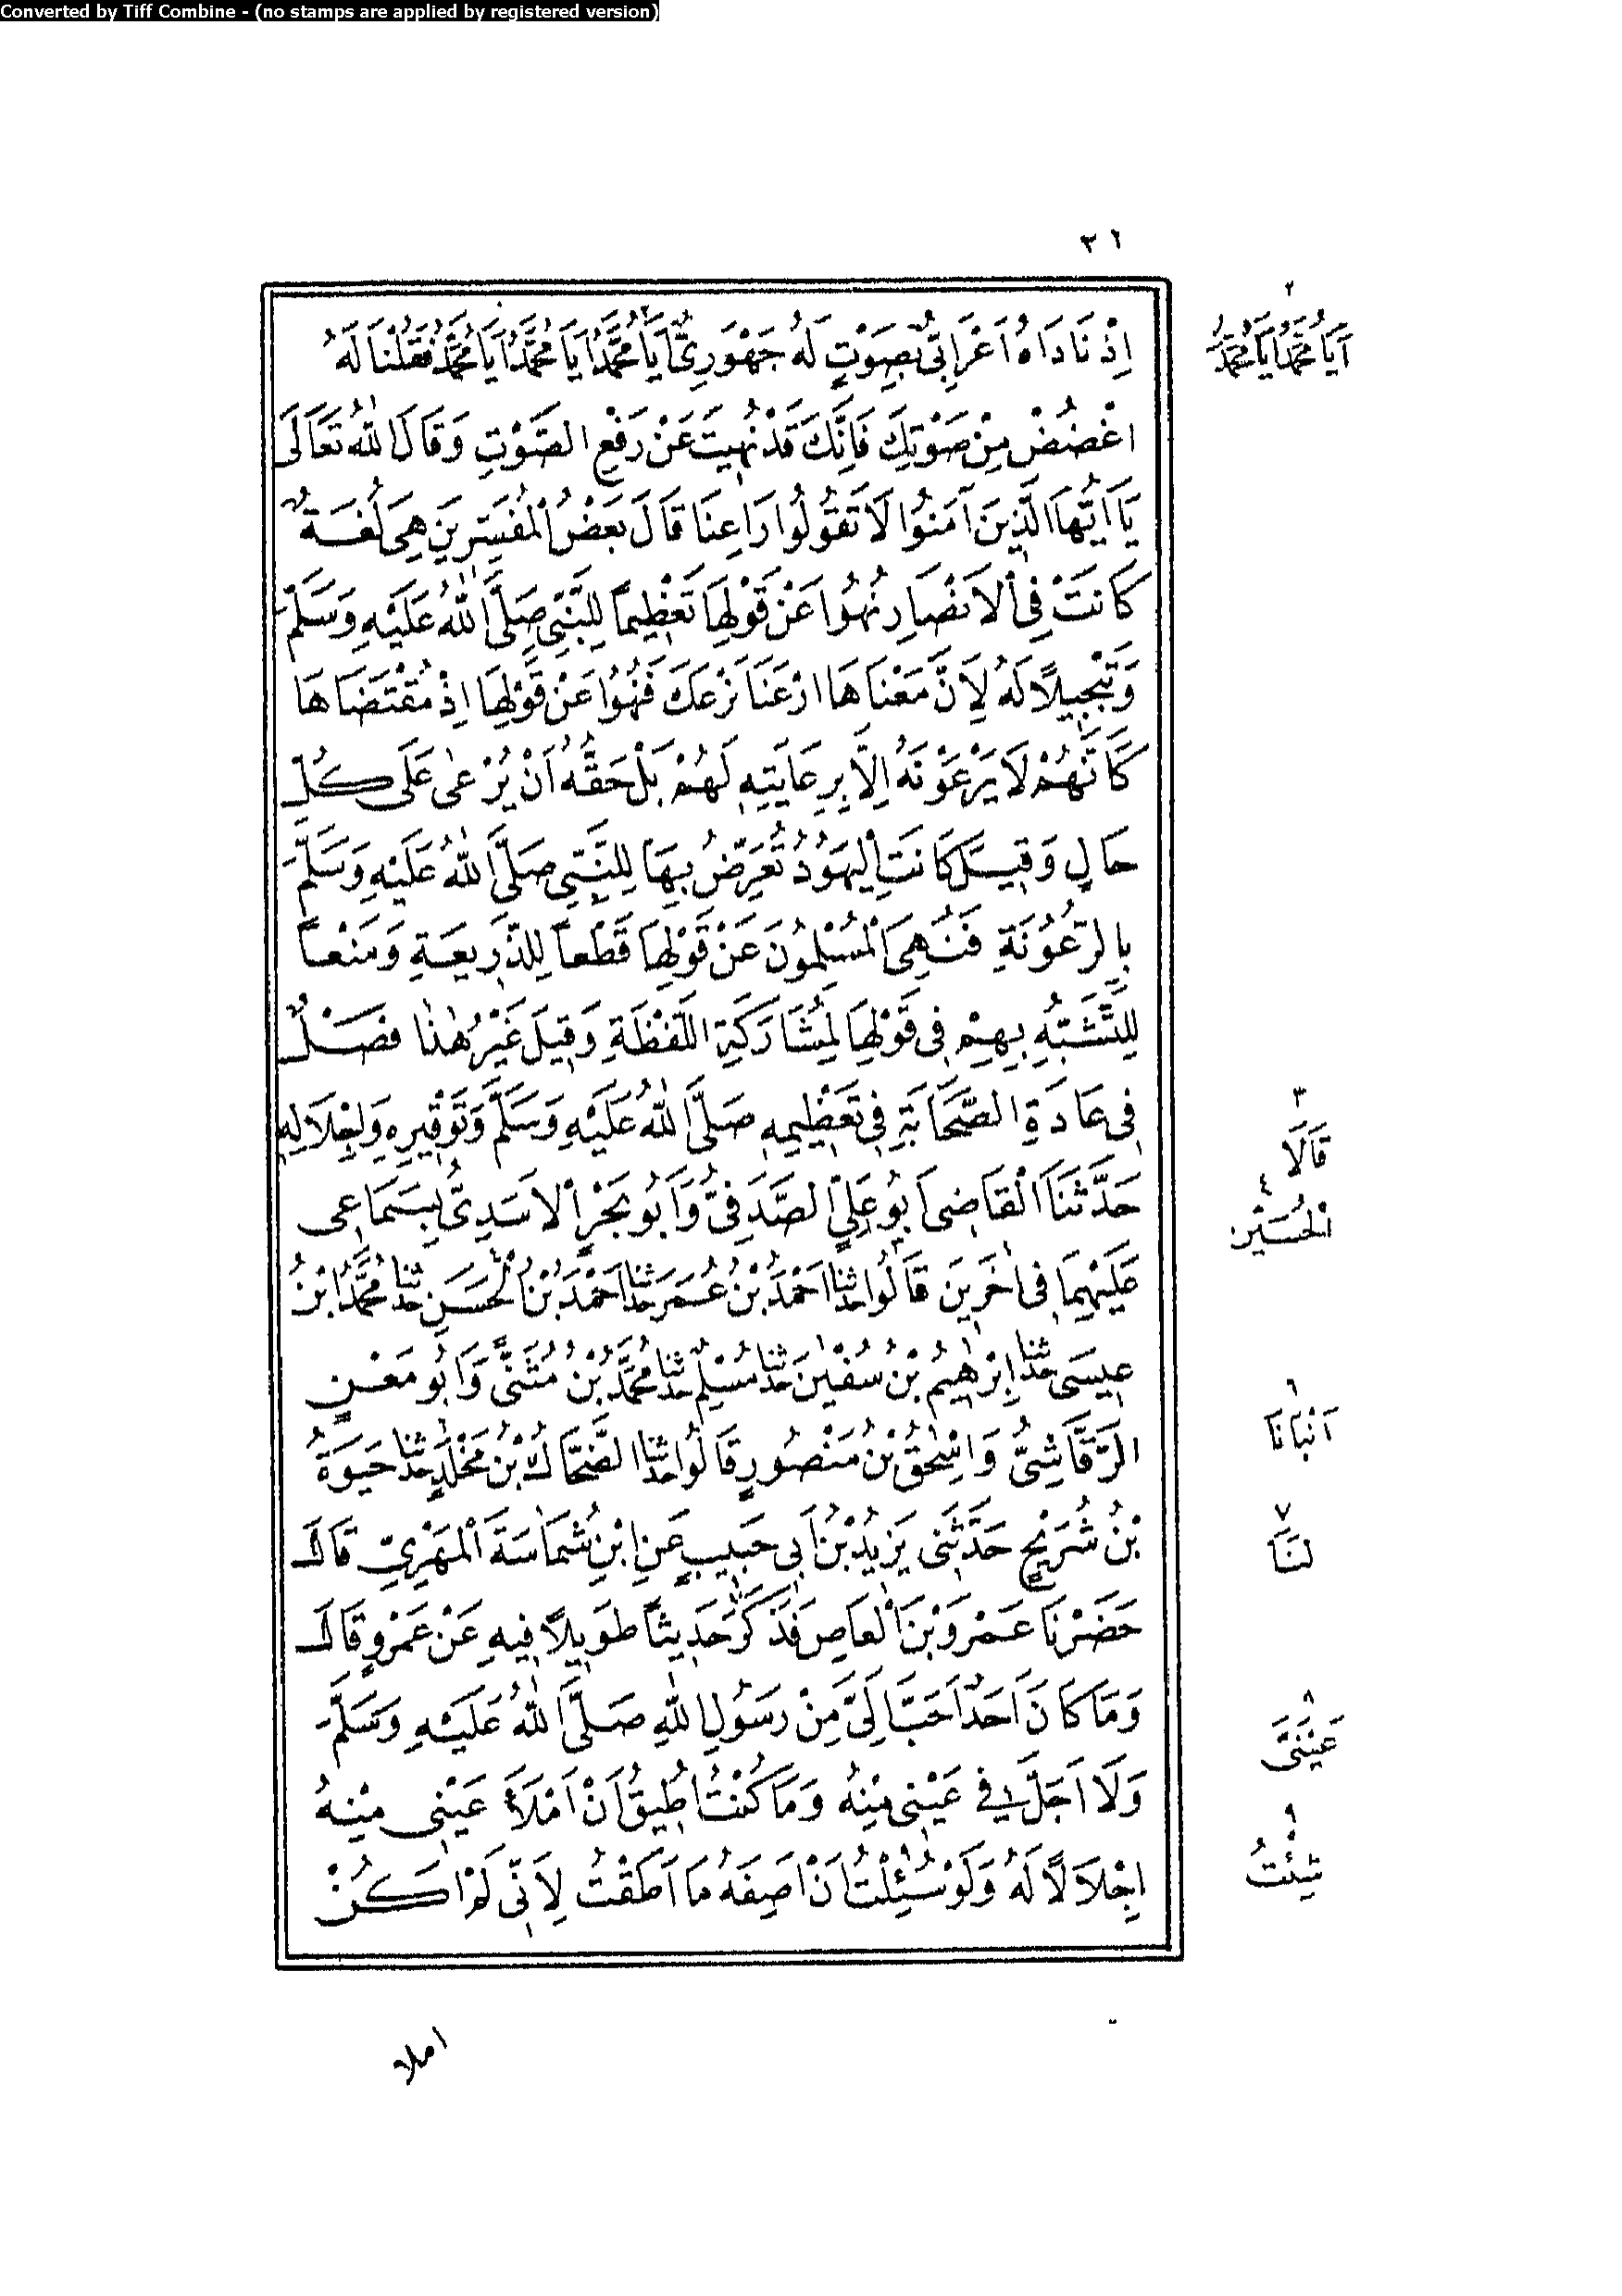 Converted by Tiff Combine - (no stamps are applied by registered version)
٣٦
اِذْ نَادَاهُ اَعْرَابِىٌّ بِصَوْتٍ لَهُ جَهْوَرِىٍّ اَيَا مُحَمَّدُ اَيَا مُحَمَّدُ اَيَا مُحَمَّدُ فَقُلْنَا لَهُ
اغْضُضْ مِنْ صَوْتِكَ فَاِنَّكَ قَدْ نُهِيتَ عَنْ رَفْعِ الصَّوْتِ وَقَالَ اللهُ تَعَالَى
يَا اَيُّهَا الَّذِينَ آمَنُوا لَا تَقُولُوا رَاعِنَا قَالَ بَعْضُ الْمُفَسِّرِينَ هِىَ لُغَةٌ
كَانَتْ فِى الْاَنْصَارِ نُهُوا عَنْ قَوْلِهَا تَعْظِيمًا لِلنَّبِىِّ صَلَّى اللهُ عَلَيْهِ وَسَلَّمَ
وَتَبْجِيلًا لَهُ لِاَنَّ مَعْنَاهَا ارْعَنَا نَرْعَكَ فَنُهُوا عَنْ قَوْلِهَا اِذْ مُقْتَضَاهَا
كَاَنَّهُمْ لَا يَرْعَوْنَهُ اِلَّا بِرِعَايَتِهِ لَهُمْ بَلْ حَقُّهُ اَنْ يُرْعٰى عَلَى كُلِّ
حَالٍ وَقِيلَ كَانَتِ الْيَهُودُ تُعَرِّضُ بِهَا لِلنَّبِىِّ صَلَّى اللهُ عَلَيْهِ وَسَلَّمَ
بِالرُّعُونَةِ فَنُهِىَ الْمُسْلِمُونَ عَنْ قَوْلِهَا قَطْعًا لِلذَّرِيعَةِ وَمَنْعًا
لِلتَّشَبُّهِ بِهِمْ فِى قَوْلِهَا لِمُشَارَكَةِ اللَّفْظَةِ وَقِيلَ غَيْرُ هٰذَا فَصْلٌ
فِى عَادَةِ الصَّحَابَةِ فِى تَعْظِيمِهِ صَلَّى اللهُ عَلَيْهِ وَسَلَّمَ وَتَوْقِيرِهِ وَاِجْلَالِهِ
حَدَّثَنَا الْقَاضِى اَبُو عَلِىٍّ الصَّدَفِىُّ وَاَبُو بَحْرٍ الْاَسَدِىُّ بِسَمَاعِى
عَلَيْهِمَا فِى اٰخَرِينَ قَالُوا حدثنا اَحْمَدُ بْنُ عُمَرَ حدثنا اَحْمَدُ بْنُ الْحَسَنِ حدثنا مُحَمَّدُ ابْنُ
عِيسَى حدثنا اِبْرٰهِيمُ بْنُ سُفْيٰنَ حدثنا مُسْلِمٌ حدثنا مُحَمَّدُ بْنُ مُثَنًّى وَاَبُو مَعْنٍ
الرَّقَاشِىُّ وَاِسْحٰقُ بْنُ مَنْصُورٍ قَالُوا حدثنا الضَّحَّاكُ بْنُ مَخْلَدٍ حدثنا حَيْوَةُ
بْنُ شُرَيْحٍ حَدَّثَنِى يَزِيدُ بْنُ اَبِى حَبِيبٍ عَنِ ابْنِ شُمَاسَةَ الْمَهْرِىِّ قَالَ
حَضَرْنَا عَمْرَو بْنَ الْعَاصِ فَذَكَرَ حَدِيثًا طَوِيلًا فِيهِ عَنْ عَمْرٍو قَالَ
وَمَا كَانَ اَحَدٌ اَحَبَّ اِلَىَّ مِنْ رَسُولِ اللهِ صَلَّى اللهُ عَلَيْهِ وَسَلَّمَ
وَلَا اَجَلَّ فِى عَيْنِى مِنْهُ وَمَا كُنْتُ اُطِيقُ اَنْ اَمْلَاَ عَيْنِى مِنْهُ
اِجْلَالًا لَهُ وَلَوْ سُئِلْتُ اَنْ اَصِفَهُ مَا اَطَقْتُ لِاَنِّى لَمْ اَكُنْ
املا
٢
اَيَا مُحَمَّدُ اَيَا مُحَمَّدُ
٣
قَالَا
٤
الْحُسَيْنِ
٦
اَنْبَانَا
٧
لَنَا
٨
عَيْنَىَّ
٩
شِئْتُ